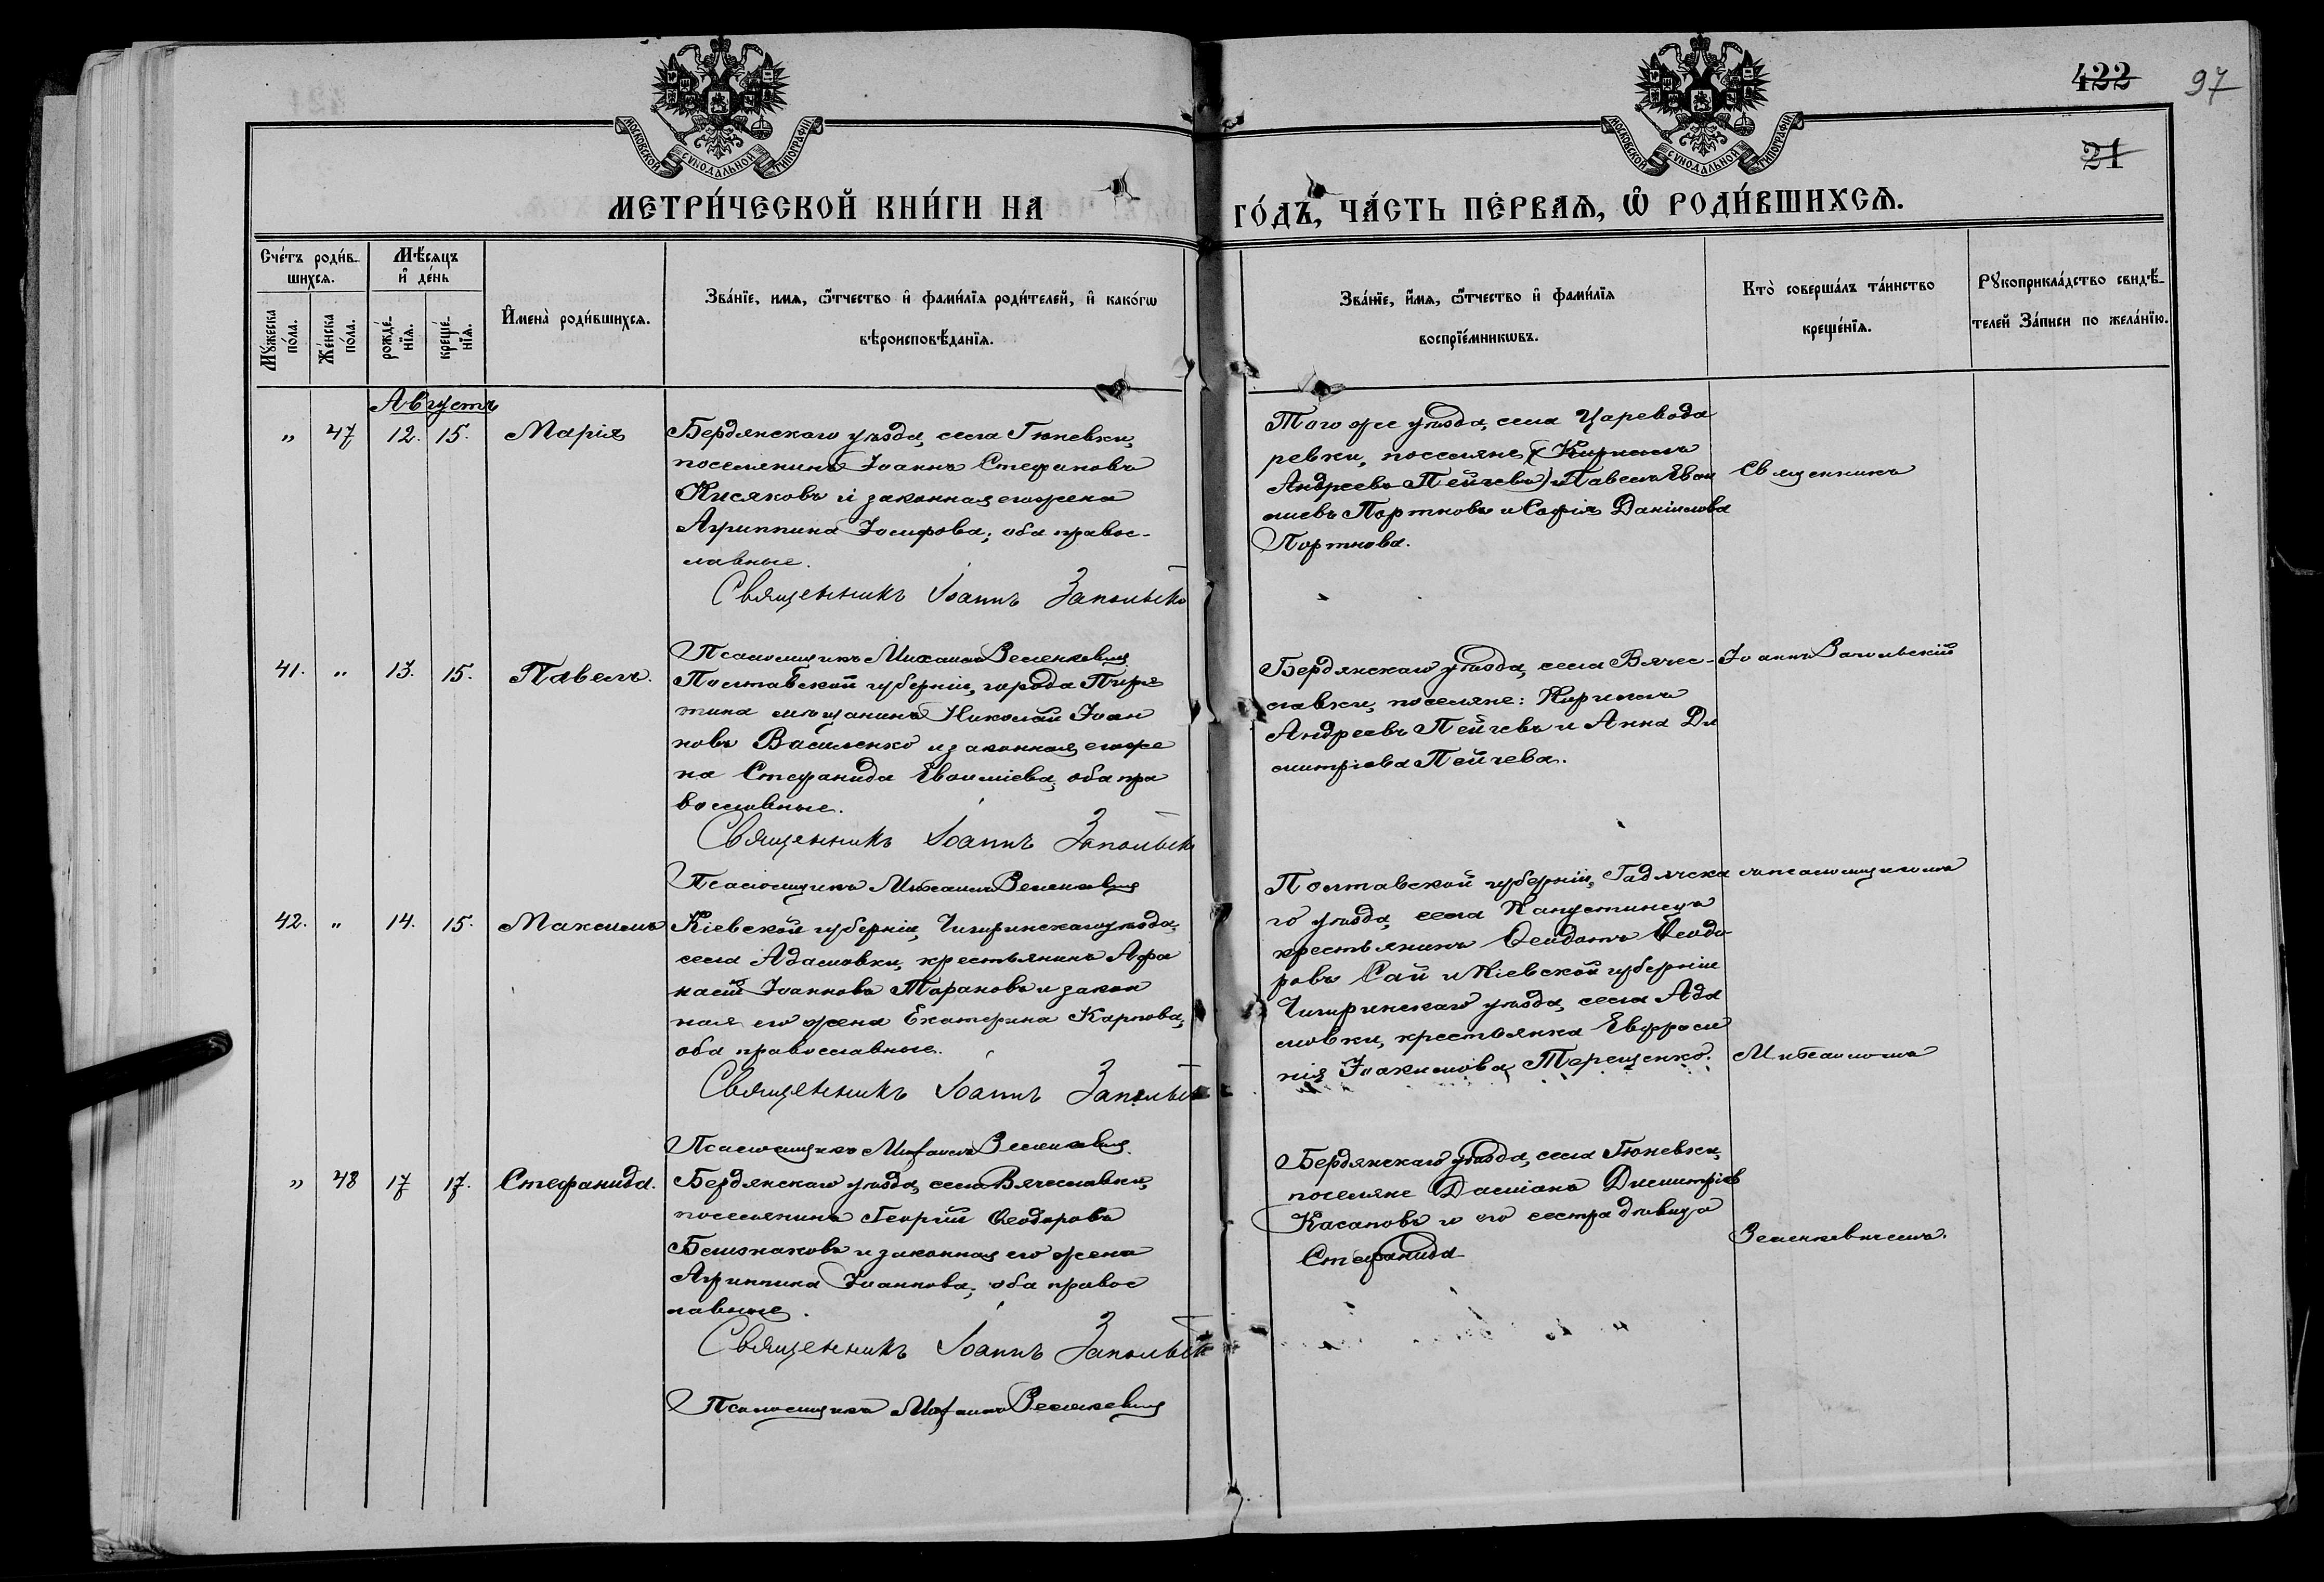 422 97
21
МОСКОВСКОЙ СУНОДАЛЬНОЙ ТИПОГРАФІИ
МОСКОВСКОЙ СУНОДАЛЬНОЙ ТИПОГРАФІИ
МЕТРИ́ЧЕСКОЙ КНИ́ГИ НА
ГО́ДЪ, ЧА́СТЬ ПЕ́РВАѦ, Ѿ РОДИ́ВШИХСѦ.
Сче́тъ роди́в-
шихсѧ.
Мꙋжеска по́ла.
Же́нска по́ла.
Мѣ́сѧцъ
и҆ де́нь
рожде́-
нїѧ.
креще́-
нїѧ.
И҆мена̀ роди́вшихсѧ.
Зва́нїе, имѧ, ѻ҆́тчество и҆ фами́лїѧ роди́телей, и҆ како́гѡ
вѣроисповѣ́данїѧ.
Зва́нїе, и҆́мѧ, ѻ҆́тчество и҆ фами́лїѧ
воспрїе́мникѡвъ.
Кто̀ соверша́лъ та́инство
креще́нїѧ.
Рꙋкоприкла́дство свидѣ́-
телей За́писи по жела́нїю.
Августъ
" 47 12. 15. Марія
Бердянскаго уѣзда, села Гюневки,
поселянинъ Іоаннъ Стефановъ
Кисяковъ и законная его жена
Агриппина Іосифова; оба правос-
лавные.
Священникъ Іоаннъ Запольск
Псаломщикъ Михаилъ Зеленкевич
Того же уѣзда, села Царевода
ревки, поселяне (Кириллъ
Андреевъ Пейчевъ) и Павелъ Еван
лиевъ Портновъ и Софія Даніилова
Портнова.
Священникъ
41. " 13. 15. Павелъ.
Полтавской губерніи, города Пиря
тина мѣщанинъ Николай Іоан
новъ Василенко и законная его же
на Стефанида Евоиміева, оба пра
вославные.
Священникъ Іоаннъ Запольск
Псаломщикъ Михаилъ Зеленкевич
Бердянскаго уѣзда, села Вячес-
лавки, поселяне: Кириллъ
Андреевъ Пейчевъ и Анна Ди
митріева Пейчева.
Іоаннъ Запольскій
42. " 14. 15. Максимъ
Кіевской губерніи, Чигиринскаго уѣзда,
села Адамовки, крестьянинъ Афа
насій Іоанновъ Тарановъ и закон
ная его жена Екатерина Карпова,
оба православные.
Священникъ Іоаннъ Запольск
Псаломщикъ Михаилъ Зеленкевич
Полтавской губерніи, Гадячска
го уѣзда, села Капустинецъ
крестьянинъ Ѳеодотъ Ѳеодо
ровъ Сай и Кіевской губерніи
Чигиринскаго уѣзда, села Ада
мовки, крестьянка Евфроси
нія Іоакимова Терещенко.
съ псаломщикомъ
Михаиломъ
" 48 17 17. Стефанида.
Бердянскаго уѣзда, села Вячеславки,
поселянинъ Георгій Ѳеодоровъ
и законная его жена
Агриппина Іоаннова, оба правос
лавные.
Священникъ Іоаннъ Запольск
Псаломщикъ Михаилъ Зеленкевич
Бердянскаго уѣзда, села Гюневки,
поселяне Даміанъ Димитріев
Касаповъ и его сестра дѣвица
Стефанида
Зеленкевичемъ.